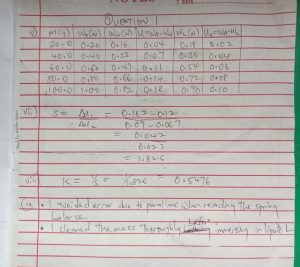 QUESTION 1
v) m(g) W₀(N) Wₐ(N) U₁=W₀-Wₐ(N) W_L(N) U₂=W₀-W_L
20.0 0.20 0.16 0.04 0.18 0.02
40.0 0.40 0.33 0.07 0.36 0.04
60.0 0.60 0.49 0.11 0.54 0.06
80.0 0.80 0.66 0.14 0.72 0.08
100.0 1.00 0.82 0.18 0.90 0.10
vii) S = ΔU₁ = 0.162 - 0.12
ΔU₂ 0.09 - 0.067
= 0.042
0.023
= 1.826
viii) K = 1/S = 1/1.826 = 0.5476
ix • I avoided error due to parallax when reading the spring
balance
• I cleaned the mass thoroughly before immersing in liquid L